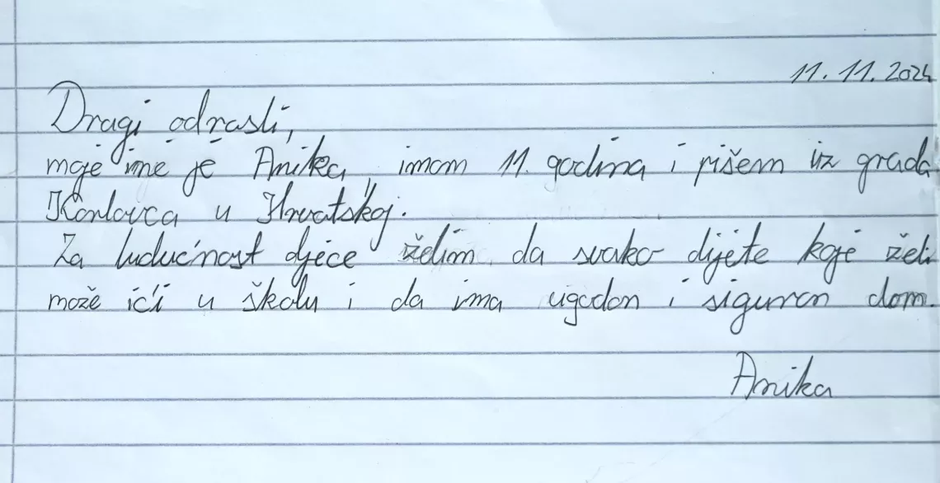 11. 11. 2024
Dragi odrasli,
moje ime je Anika, imam 11. godina i pišem iz grada
Karlovca u Hrvatskoj.
Za budućnost djece želim da svako dijete koje želi
može ići u školu i da ima ugodan i siguran dom.
Anika